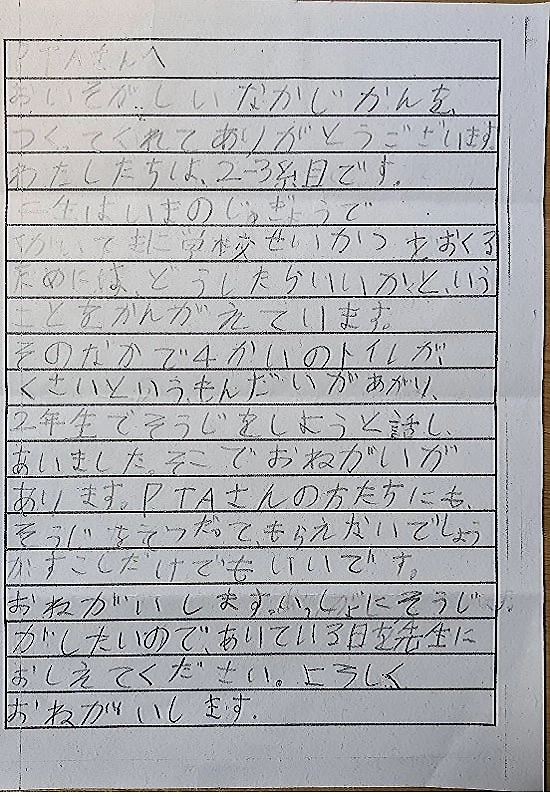 PTAさんへ
おいそがしいなかじかんを、
つくってくれてありがとうございます
わたしたちは、2-3組目です。
二年生はいまのじゅぎょうで
かいてきに学校せいかつをおくる
ためには、どうしたらいいか、と、いう
ことをかんがえています。
そのなかで4かいのトイレが、
くさいという、もんだいがあがり、
2年生でそうじをしようと話し、
あいました。そこでおねがいが
あります。PTAさんの方たちにも、
そうじをてつだって、もらえないでしょう
かすこしだけでもいいです。
おねがいします。いっしょにそうじ
がしたいので、あいている日を先生に
おしえてください。よろしく
おねがいします。